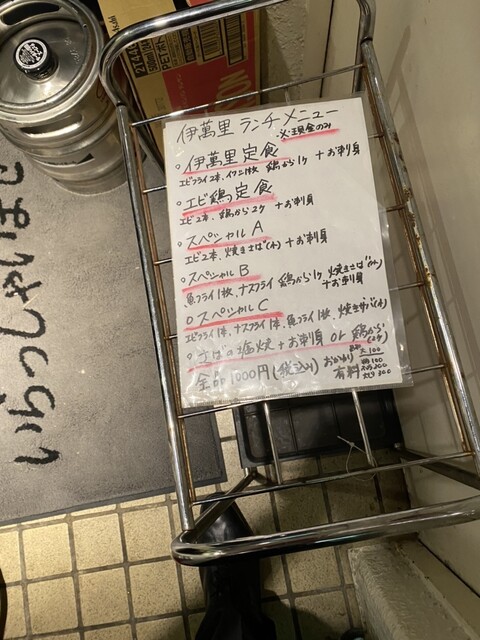 伊萬里 ランチメニュー
※現金のみ
○伊萬里定食
エビフライ2本、イワシ1枚 鶏から1ヶ +お刺身
○エビ鶏の定食
エビ2本、鶏から2ヶ +お刺身
○スペシャルA
エビ2本、焼きさば(小) +お刺身
○スペシャルB
魚フライ1枚、ナスフライ 鶏から1ヶ 焼きさば(小)
+お刺身
○スペシャルC
エビフライ1本、ナスフライ1本、魚フライ1枚、焼きサバ(小)
○さばの塩焼+お刺身 or 鶏から
(2ヶ)
全品1000円(税込み) おかわり
有料
大100
いらっしゃいませ
Asahi